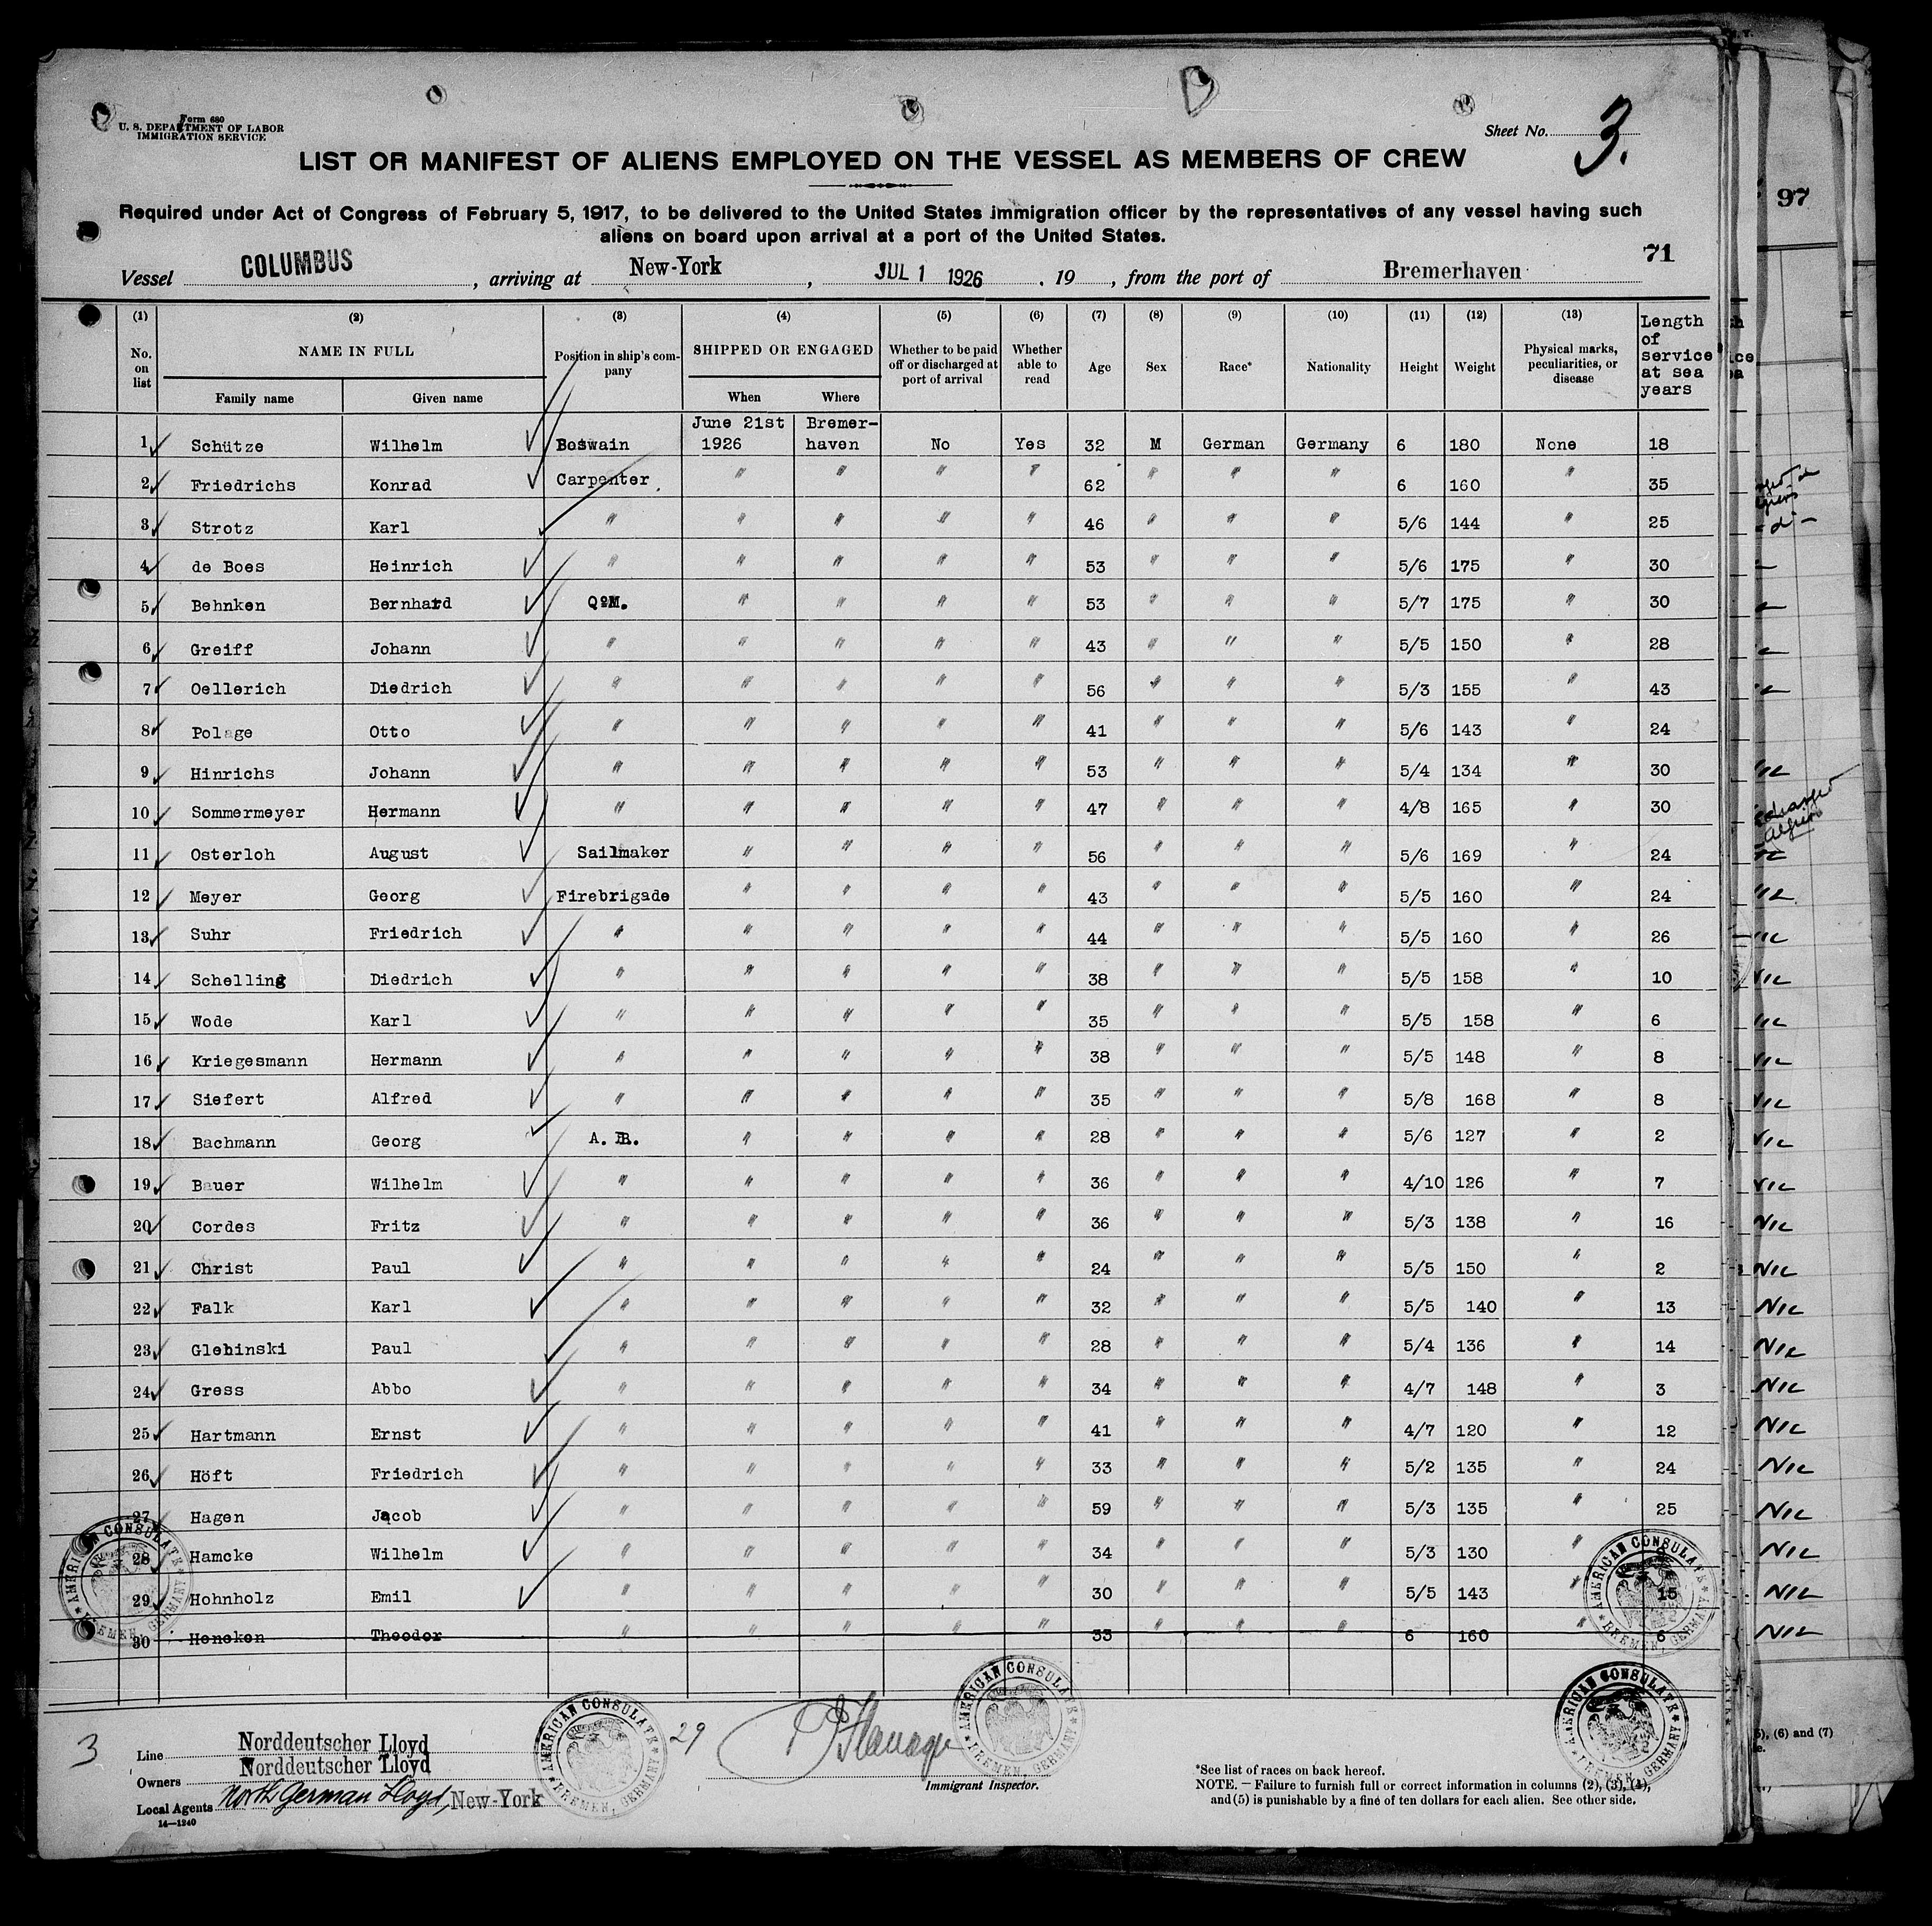 Form 680
U. S. DEPARTMENT OF LABOR
IMMIGRATION SERVICE
Sheet No. 3.
LIST OR MANIFEST OF ALIENS EMPLOYED ON THE VESSEL AS MEMBERS OF CREW
Required under Act of Congress of February 5, 1917, to be delivered to the United States immigration officer by the representatives of any vessel having such
aliens on board upon arrival at a port of the United States.
97
71
Vessel COLUMBUS, arriving at New-York, JUL 1 1926, 19, from the port of Bremerhaven
(1) (2) (3) (4) (5) (6) (7) (8) (9) (10) (11) (12) (13)
No. on list NAME IN FULL Position in ship's company SHIPPED OR ENGAGED Whether to be paid off or discharged at port of arrival Whether able to read Age Sex Race* Nationality Height Weight Physical marks, peculiarities, or disease Length of service at sea years
Family name Given name When Where
1 Schütze Wilhelm Boswain June 21st 1926 Bremer-haven No Yes 32 M German Germany 6 180 None 18
2 Friedrichs Konrad Carpenter " " " " 62 " " " 6 160 " 35
3 Strotz Karl " " " " " 46 " " " 5/6 144 " 25
4 de Boes Heinrich " " " " " 53 " " " 5/6 175 " 30
5 Behnken Bernhard QoM. " " " " 53 " " " 5/7 175 " 30
6 Greiff Johann " " " " " 43 " " " 5/5 150 " 28
7 Oellerich Diedrich " " " " " 56 " " " 5/3 155 " 43
8 Polage Otto " " " " " 41 " " " 5/6 143 " 24
9 Hinrichs Johann " " " " " 53 " " " 5/4 134 " 30
10 Sommermeyer Hermann " " " " " 47 " " " 4/8 165 " 30
11 Osterloh August Sailmaker " " " " 56 " " " 5/6 169 " 24
12 Meyer Georg Firebrigade " " " " 43 " " " 5/5 160 " 24
13 Suhr Friedrich " " " " " 44 " " " 5/5 160 " 26
14 Schelling Diedrich " " " " " 38 " " " 5/5 158 " 10
15 Wode Karl " " " " " 35 " " " 5/5 158 " 6
16 Kriegesmann Hermann " " " " " 38 " " " 5/5 148 " 8
17 Siefert Alfred " " " " " 35 " " " 5/8 168 " 8
18 Bachmann Georg A. B. " " " " 28 " " " 5/6 127 " 2
19 Bauer Wilhelm " " " " " 36 " " " 4/10 126 " 7
20 Cordes Fritz " " " " " 36 " " " 5/3 138 " 16
21 Christ Paul " " " " " 24 " " " 5/5 150 " 2
22 Falk Karl " " " " " 32 " " " 5/5 140 " 13
23 Glehinski Paul " " " " " 28 " " " 5/4 136 " 14
24 Gress Abbo " " " " " 34 " " " 4/7 148 " 3
25 Hartmann Ernst " " " " " 41 " " " 4/7 120 " 12
26 Höft Friedrich " " " " " 33 " " " 5/2 135 " 24
27 Hagen Jacob " " " " " 59 " " " 5/3 135 " 25
28 Hamcke Wilhelm " " " " " 34 " " " 5/3 130 "
29 Hohnholz Emil " " " " " 30 " " " 5/5 143 " 15
30 Heneken Theodor " " " " " 33 " " " 6 160 " 6
AMERICAN CONSULATE BREMEN, GERMANY
AMERICAN CONSULATE BREMEN, GERMANY
AMERICAN CONSULATE BREMEN, GERMANY
AMERICAN CONSULATE BREMEN, GERMANY
AMERICAN CONSULATE BREMEN, GERMANY
3
29
Line Norddeutscher Lloyd
Owners Norddeutscher Lloyd
Local Agents North German Lloyd, New-York
14—1240
Immigrant Inspector.
*See list of races on back hereof.
NOTE. — Failure to furnish full or correct information in columns (2), (3), (4),
and (5) is punishable by a fine of ten dollars for each alien. See other side.
(6) and (7)
Nil
Nil
Nil
Nil
Nil
Nil
Nil
Nil
Nil
Nil